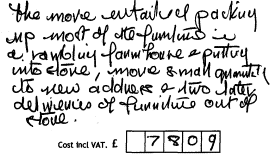 The move entailed packing
up most of the furniture in
a rambling farmhouse & putting
into store, move small quantity
to new address & two later
deliveries of furniture out of
store.
Cost incl VAT. £ 7809